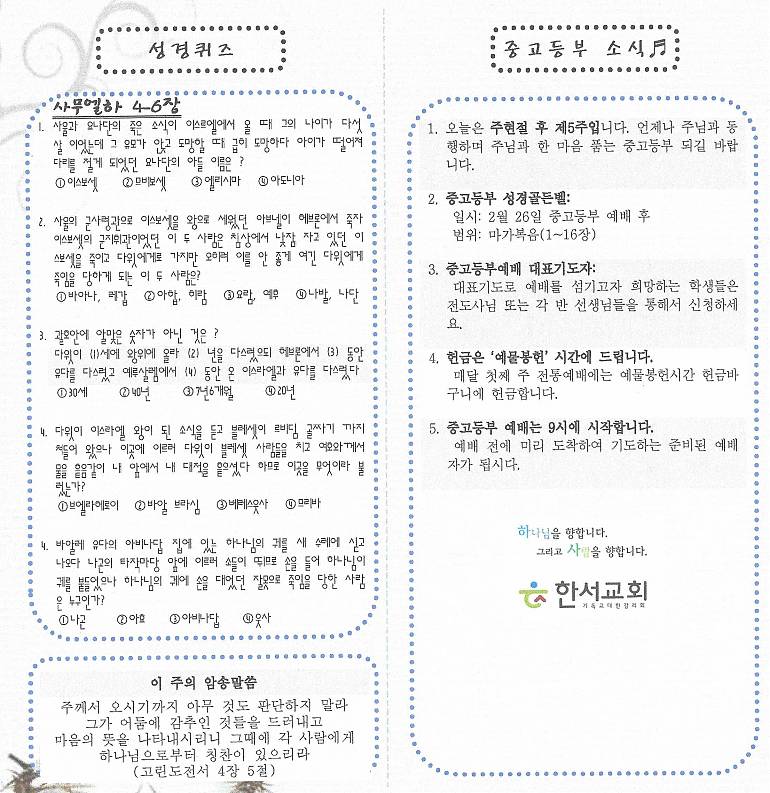 성경퀴즈
사무엘하 4-6장
1. 사울과 요나단의 죽은 소식이 이스르엘에서 올 때 그의 나이가 다섯
살 이었는데 그 유모가 안고 도망할 때 급히 도망하다 아이가 떨어져
다리를 절게 되었던 요나단의 아들 이름은 ?
①이스보셋 ②므비보셋 ③엘리사마 ④아도니아
2. 사울의 군사령관으로 이스보셋을 왕으로 세웠던 아브넬이 헤브론에서 죽자
이스보셋의 군지휘관이었던 이 두 사람은 침상에서 낮잠 자고 있던 이
스보셋을 죽이고 다윗에게로 가지만 오히려 이를 안 좋게 여긴 다윗에게
죽임을 당하게 되는 이 두 사람은?
①바아나, 레갑 ②아합, 히람 ③요람, 예후 ④나발, 나단
3. 괄호안에 알맞은 숫자가 아닌 것은 ?
다윗이 (1)세에 왕위에 올라 (2) 년을 다스렸으되 헤브론에서 (3) 동안
유다를 다스렸고 예루살렘에서 (4) 동안 온 이스라엘과 유다를 다스렸다
①30세 ②40년 ③7년6개월 ④20년
4. 다윗이 이스라엘 왕이 된 소식을 듣고 블레셋이 르바딤 골짜기 까지
쳐들어 왔으나 이곳에 이르러 다윗이 블레셋 사람들을 치고 여호와께서
물을 흩음같이 내 앞에서 내 대적을 흩으셨다 하므로 이곳을 무엇이라 불
렀는가?
①브엘라해로이 ②바알 브라심 ③베레스웃사 ④므리바
4. 바알레 유다의 아비나답 집에 있는 하나님의 궤를 새 수레에 싣고
나오다 나곤의 타작마당 앞에 이르러 소들이 뛰므로 손을 들어 하나님의
궤를 붙들었으나 하나님의 궤에 손을 대었던 잘못으로 죽임을 당한 사람
은 누구인가?
①나곤 ②아효 ③아비나답 ④웃사
이 주의 암송말씀
주께서 오시기까지 아무 것도 판단하지 말라
그가 어둠에 감추인 것들을 드러내고
마음의 뜻을 나타내시리니 그때에 각 사람에게
하나님으로부터 칭찬이 있으리라
(고린도전서 4장 5절)
중고등부 소식♬
1. 오늘은 주현절 후 제5주입니다. 언제나 주님과 동
행하며 주님과 한 마음 품는 중고등부 되길 바랍
니다.
2. 중고등부 성경골든벨:
일시: 2월 26일 중고등부 예배 후
범위: 마가복음(1~16장)
3. 중고등부예배 대표기도자:
대표기도로 예배를 섬기고자 희망하는 학생들은
전도사님 또는 각 반 선생님들을 통해서 신청하세
요.
4. 헌금은 '예물봉헌' 시간에 드립니다.
매달 첫째 주 전통예배에는 예물봉헌시간 헌금바
구니에 헌금합니다.
5. 중고등부 예배는 9시에 시작합니다.
예배 전에 미리 도착하여 기도하는 준비된 예배
자가 됩시다.
하나님을 향합니다.
그리고 사람을 향합니다.
한서교회
기독교대한감리회